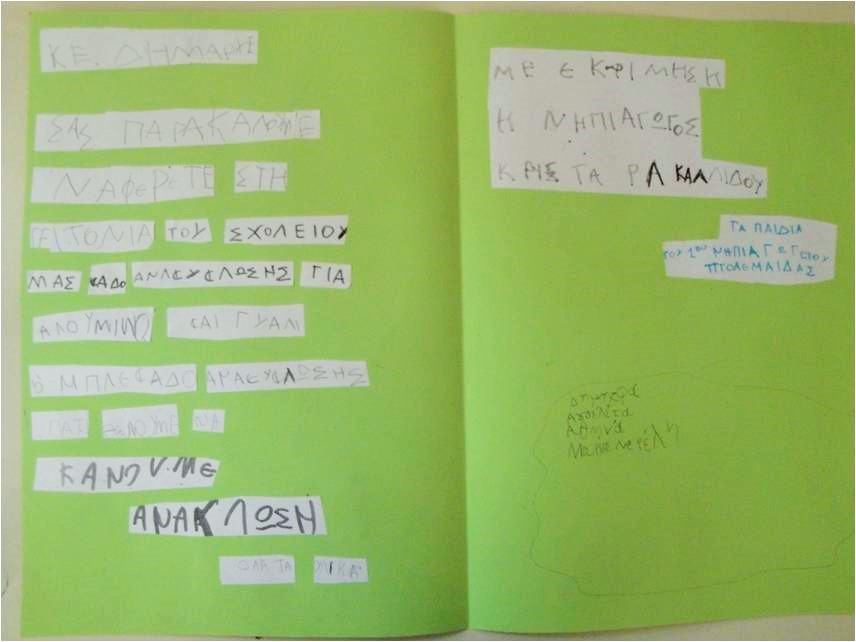 ΚΕ. ΔΗΜΑΡΧΕ
ΣΑΣ ΠΑΡΑΚΑΛΟΥΜΕ
ΝΑΦΕΡΕΤΕ ΣΤΗ
ΓΕΙΤΟΝΙΑ ΤΟΥ ΣΧΟΛΕΙΟΥ
ΜΑΣ ΚΑΔΟ ΑΝΑΚΥΚΛΩΣΗΣ ΓΙΑ
ΑΛΟΥΜΙΝΙΟ ΚΑΙ ΓΥΑΛΙ
ΜΠΛΕ ΚΑΔΟ ΑΝΑΚΥΚΛΩΣΗΣ
ΘΕΛΟΥΜΕ ΝΑ
ΚΑΝΟΥΜΕ
ΑΝΑΚΛΩΣΗ
ΟΛΑ ΤΑ ΥΛΙΚΑ
ΜΕ ΕΚΡΙΜΗΣΗ
Η ΝΗΠΙΑΓΩΓΟΣ
ΚΡΙΣΤΑ ΡΑΚΑΛΛΙΔΟΥ
ΤΑ ΠΑΙΔΙΑ
ΤΟΥ 1ου ΝΗΠΙΑΓΩΓΕΙΟΥ
ΠΤΟΛΕΜΑΙΔΑΣ
Δήμητρα
Αθηνά